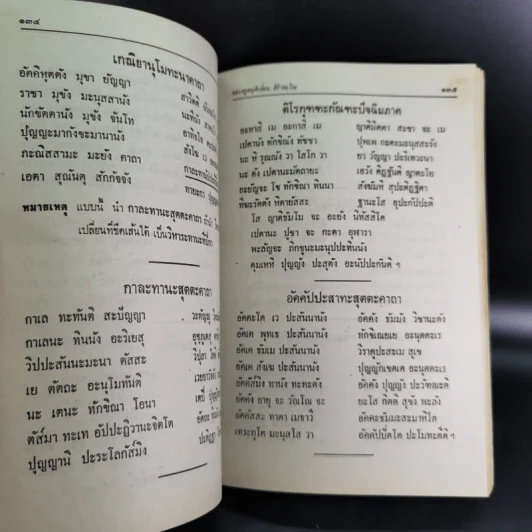 ๑๓๔
เกณิยานุโมทะนาคาถา
อัคคิหุตตัง มุขา ยัญญา
ราชา มุขัง มะนุสสานัง
นักขัตตานัง มุขัง จันโท
ปุญญะมากังขะมานานัง
ภะณิสสามะ มะยัง คาถา
เอตา สุณันตุ สักกัจจัง
หมายเหตุ แบบนี้ นำ กาละทานะสุตตะคาถา
เปลี่ยนที่ขีดเส้นใต้ เป็นวิหาระทานะที่
กาละทานะสุตตะคาถา
กาเล ทะทันติ สะปัญญา วะทัญญู
กาเลนะ ทินนัง อะริเยสุ
วิปปะสันนะมะนา ตัสสะ
เย ตัตถะ อะนุโมทันติ
นะ เตนะ ทักขิณา โอนา
ตัส์มา ทะเท อัปปะฏิวานะจิตโต
ปุญญานิ ปะระโลกัส์มิง
๑๓๕
ติโรกุฑฑะกัณฑะปัจฉิมภาค
อะทาสิ เม อะกาสิ เม ญาติมิตตา สะขา จะ เม
เปตานัง ทักขิณัง ทัชชา ปุพเพ กะตะมะนุสสะรัง
นะ หิ รุณณัง วา โสโก วา ยา วัญญา ปะริเทวะนา
นะ ตัง เปตานะมัตถายะ เอวัง ติฏฐันติ ญาตะโย
อะยัญจะ โข ทักขิณา ทินนา สังฆัมหิ สุปะติฏฐิตา
ทีฆะรัตตัง หิตายัสสะ ฐานะโส อุปะกัปปะติ
โส ญาติธัมโม จะ อะยัง นิทัสสิโต
เปตานะ ปูชา จะ กะตา อุฬารา
พะลัญจะ ภิกขูนะมะนุปปะทินนัง
ตุมเหหิ ปุญญัง ปะสุตัง อะนัปปะกันติ ฯ
อัคคัปปะสาทะสุตตะคาถา
อัคคะโต เว ปะสันนานัง อัคคัง ธัมมัง วิชานะตัง
อัคเค พุทเธ ปะสันนานัง ทักขิเณยเย อะนุตตะเร
อัคเค ธัมเม ปะสันนานัง วิราคูปะสะเม สุเข
อัคเค สังเฆ ปะสันนานัง ปุญญักเขตเต อะนุตตะเร
อัคคัส์มิง ทานัง ทะทะตัง อัคคัง ปุญญัง ปะวัฑฒะติ
อัคคัง อายุ จะ วัณโณ จะ ยะโส กิตติ สุขัง พะลัง
อัคคัสสะ ทาตา เมธาวี อัคคะธัมมะสะมาหิโต
เทวะภูโต มะนุสโส วา อัคคัปปัตโต ปะโมทะตีติ ฯ